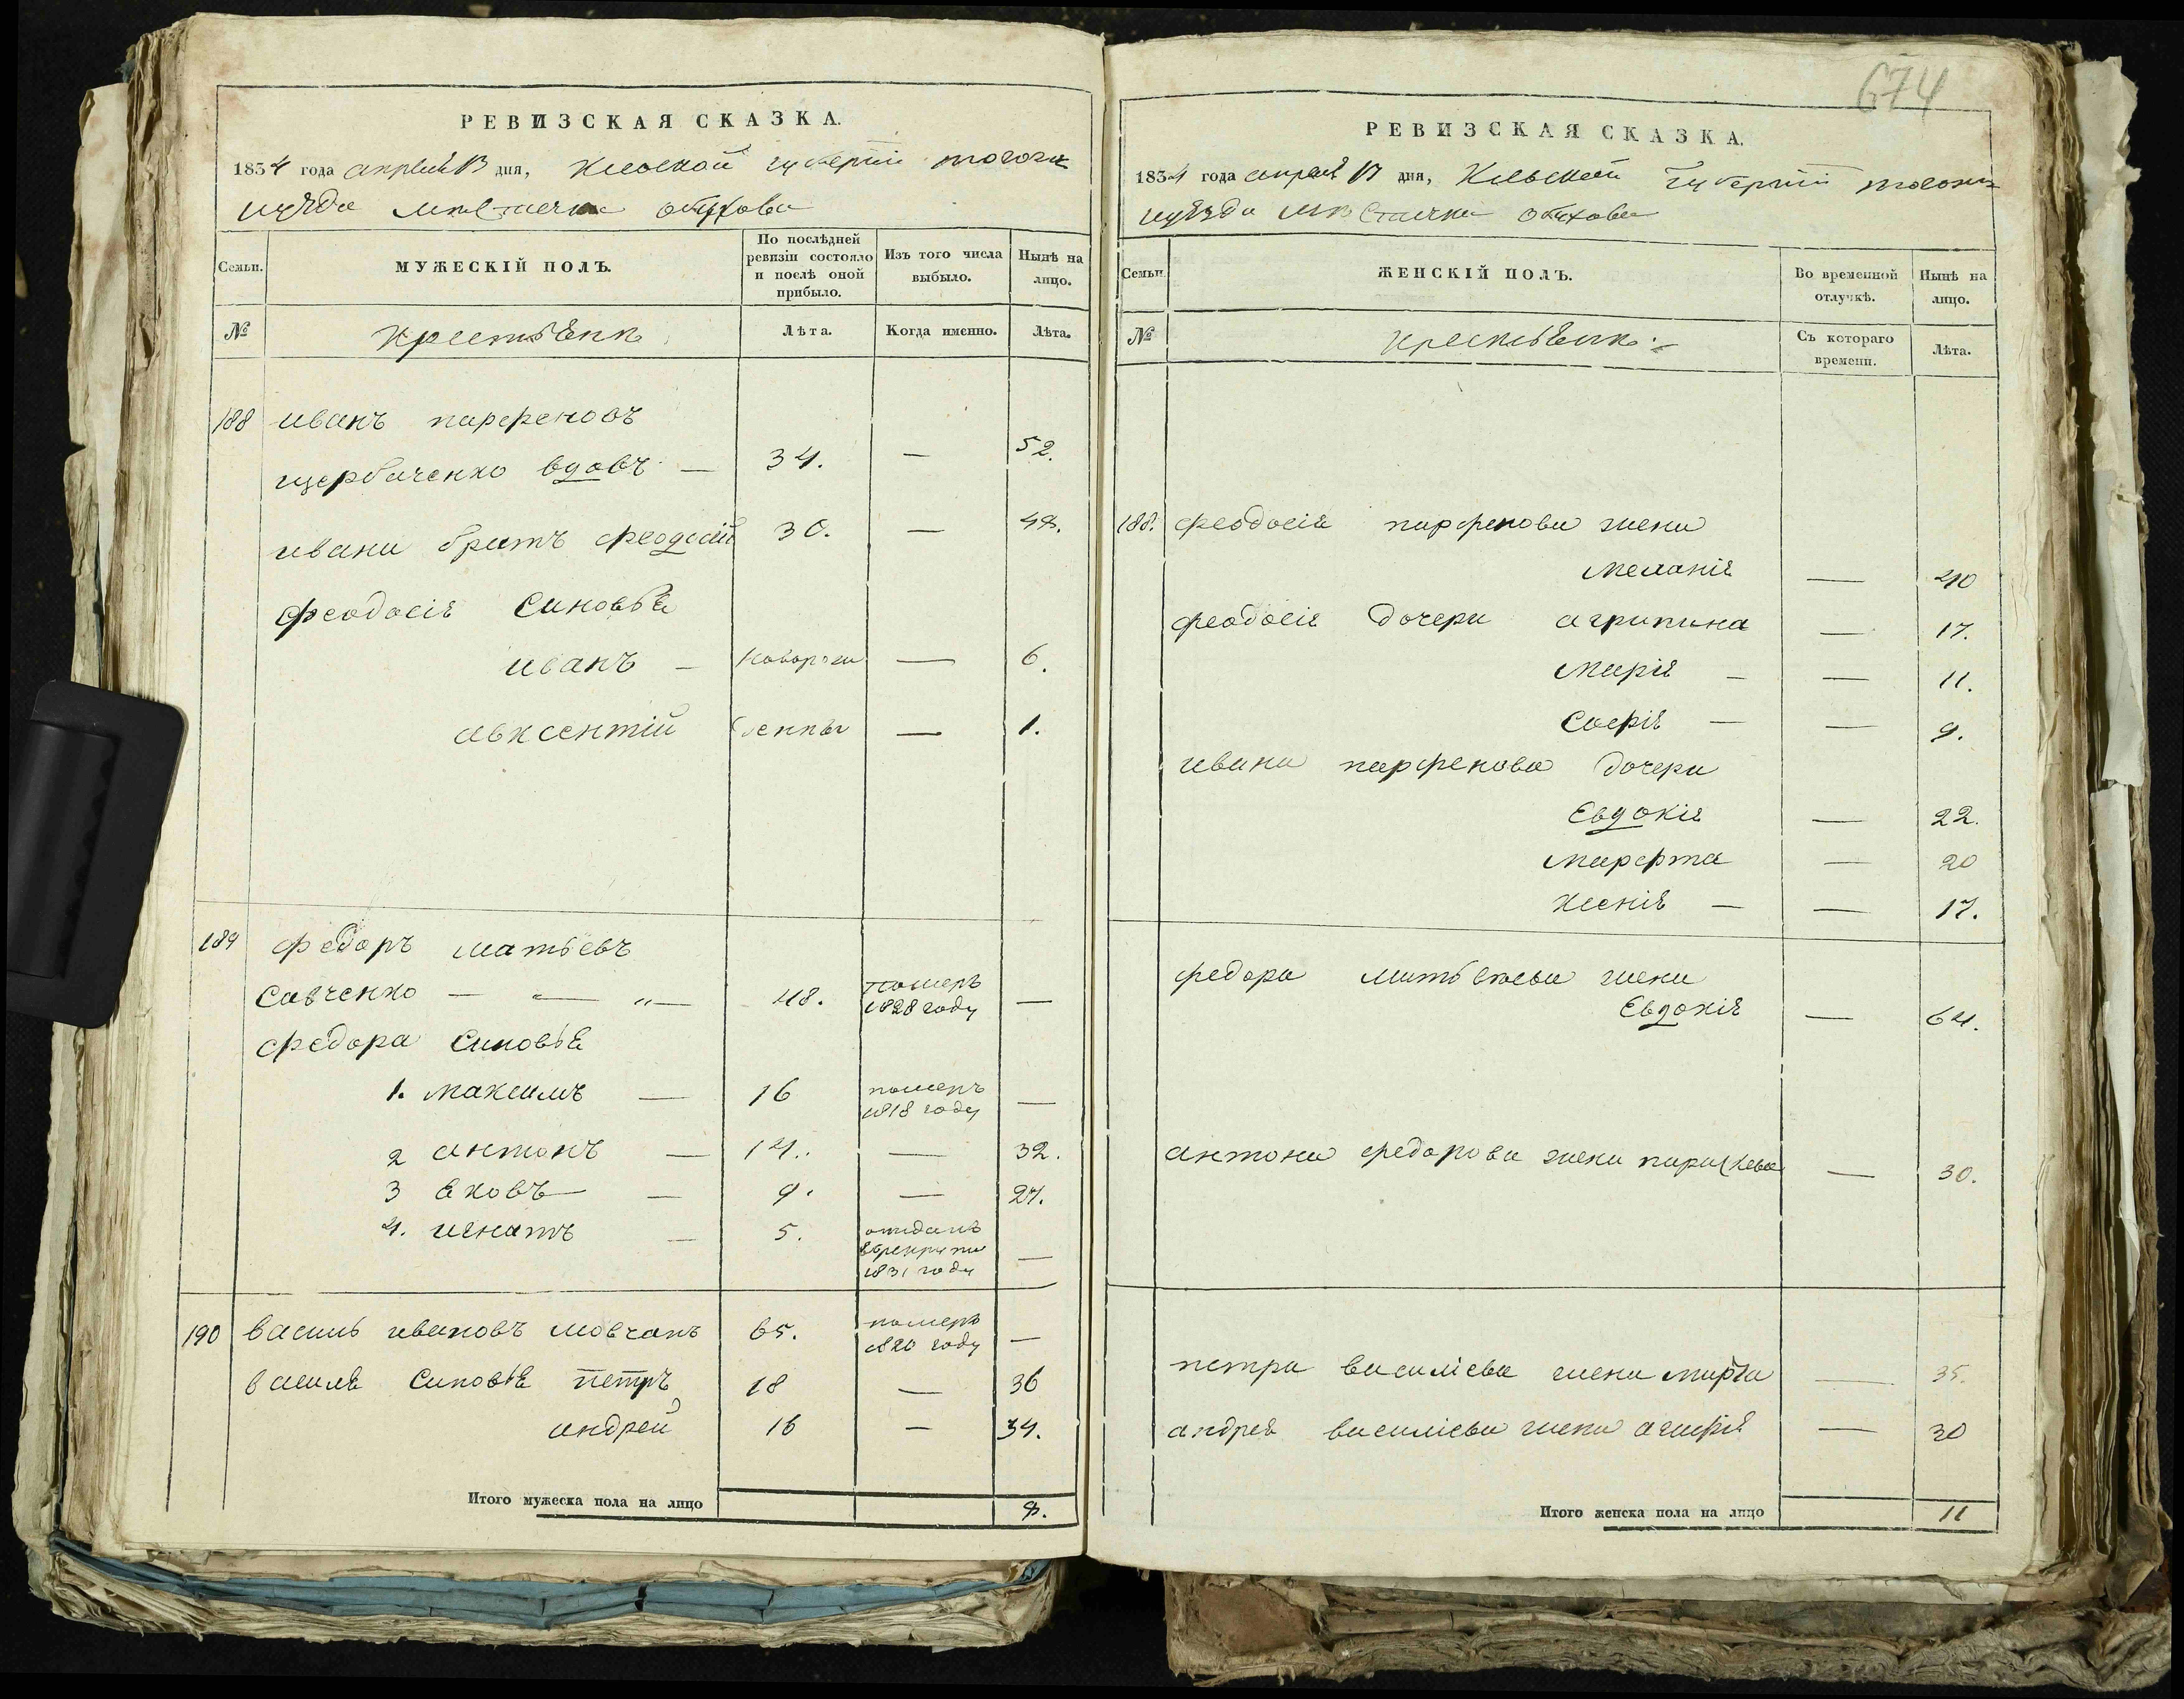 РЕВИЗСКАЯ СКАЗКА.
1834 года апреля 13 дня, Киевской губернии тогожъ
уезда местечка обухова
Семьи. МУЖЕСКІЙ ПОЛЪ. По послѣдней ревизіи состояло и послѣ оной прибыло. Изъ того числа выбыло. Нынѣ на лицо.
№ крестьяне Лѣта. Когда именно. Лѣта.
188 иванъ парфеновъ
щербаченко вдовъ — 34. — 52.
ивана братъ феодосій 30. — 48.
феодосія синовья
иванъ — новорож — 6.
авксентій денны — 1.
189 федоръ матвевъ
Савченко — — „— 48. померъ 1828 году —
федора синовья
1. максимъ — 16 померъ 1818 году —
2 антонъ — 14. — 32.
3 яковъ — 9. — 27.
4. игнатъ — 5. отданъ в рекруты 1831 году —
190 василь ивановъ мовчанъ 65. померъ 1820 году —
василя синовья петръ 18 — 36
андрей 16 — 34.
Итого мужеска пола на лицо 8.
674
РЕВИЗСКАЯ СКАЗКА.
1834 года апреля 13 дня, Киевской губернии тогожъ
уезда местечка обухова
Семьи. ЖЕНСКІЙ ПОЛЪ. Во временной отлучкѣ. Нынѣ на лицо.
№ крестьяне Съ котораго времени. Лѣта.
188. феодосія парфенова жена
меланія — 40
феодосія дочери агрипина — 17.
марія — — 11.
софія — — 9.
ивана парфенова дочери
Евдокія — 22.
марфта — 20
ксенія — — 17.
федора матвеева жена
Евдокія — 64.
антона федорова жена параскева — 30.
петра василіева жена марфа — 35.
андрея василіева жена агафія — 30
Итого женска пола на лицо 11